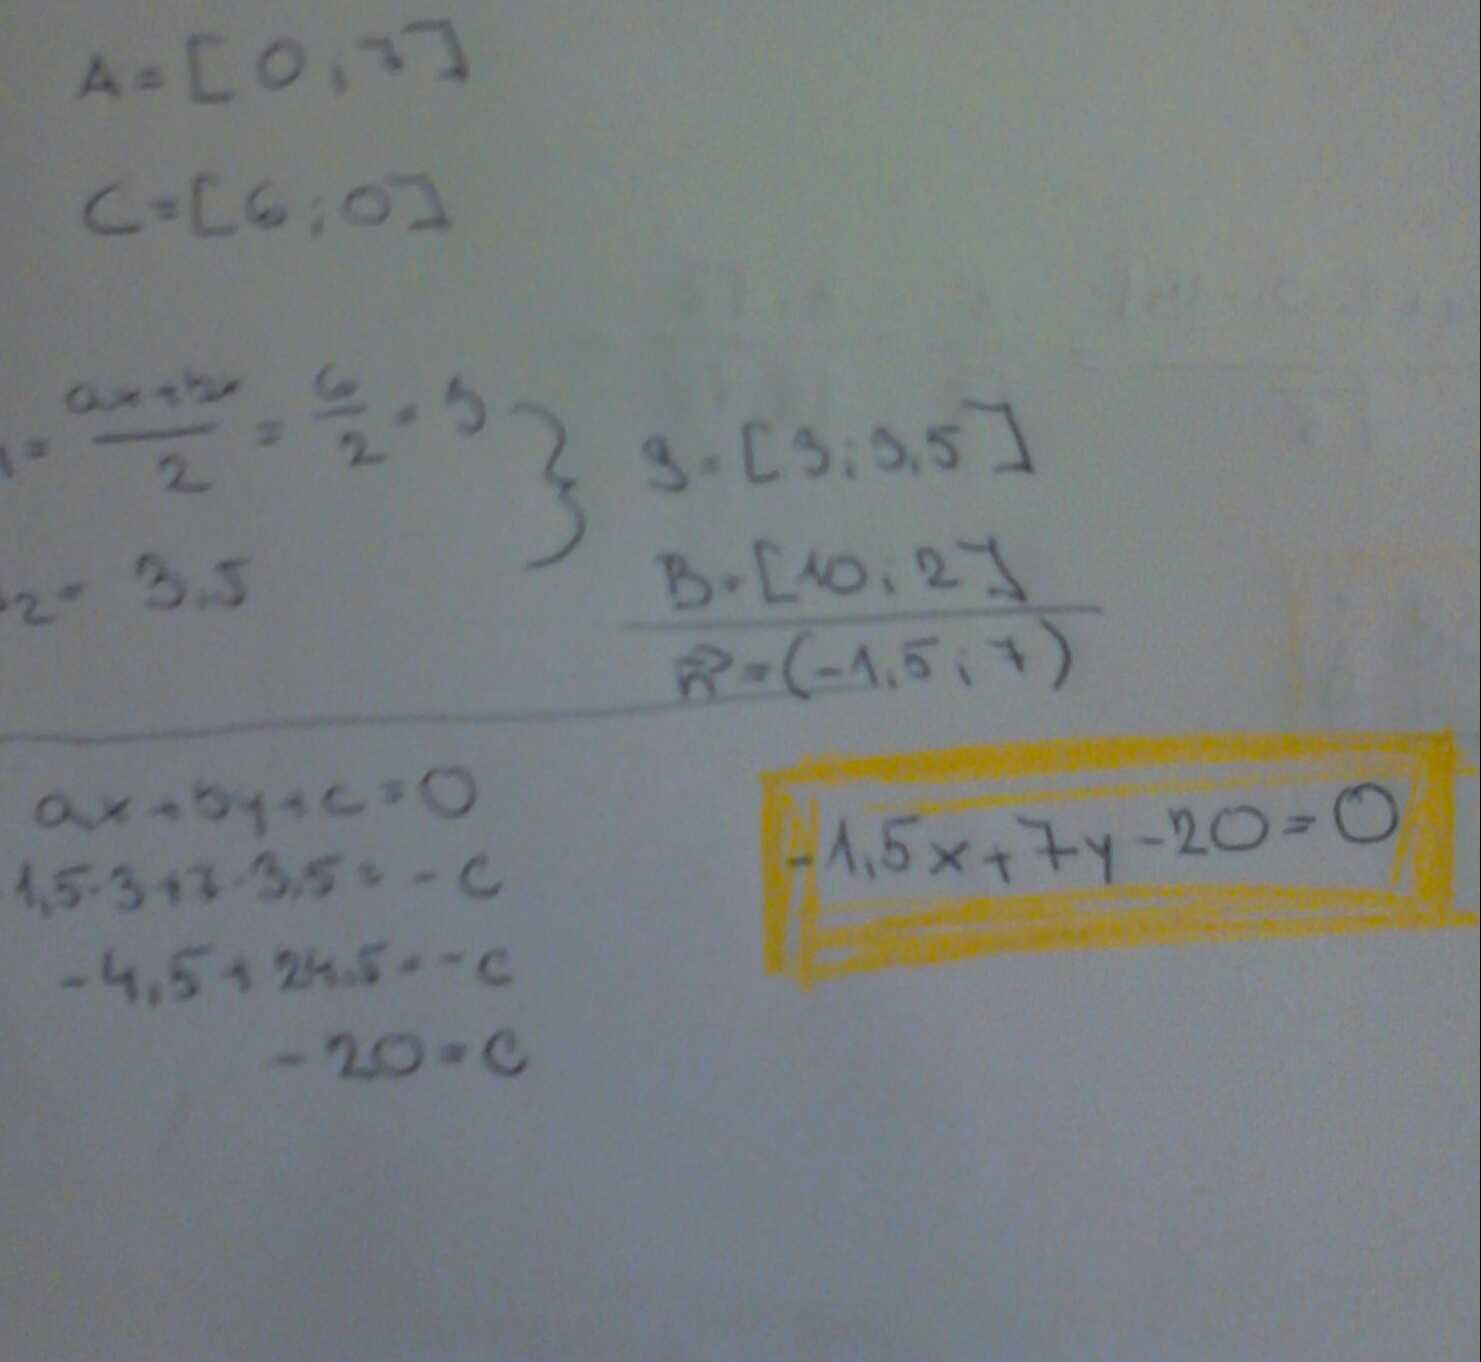 A=[0;7]
C=[6;0]
1= ax+bx/2 = 6/2 = 3
2= 3.5
S=[3;3,5]
B=[10;2]
n=(-1,5;7)
ax+by+c=0
1,5·3+7·3,5=-c
-4,5+24,5=-c
-20=c
-1,5x+7y-20=0